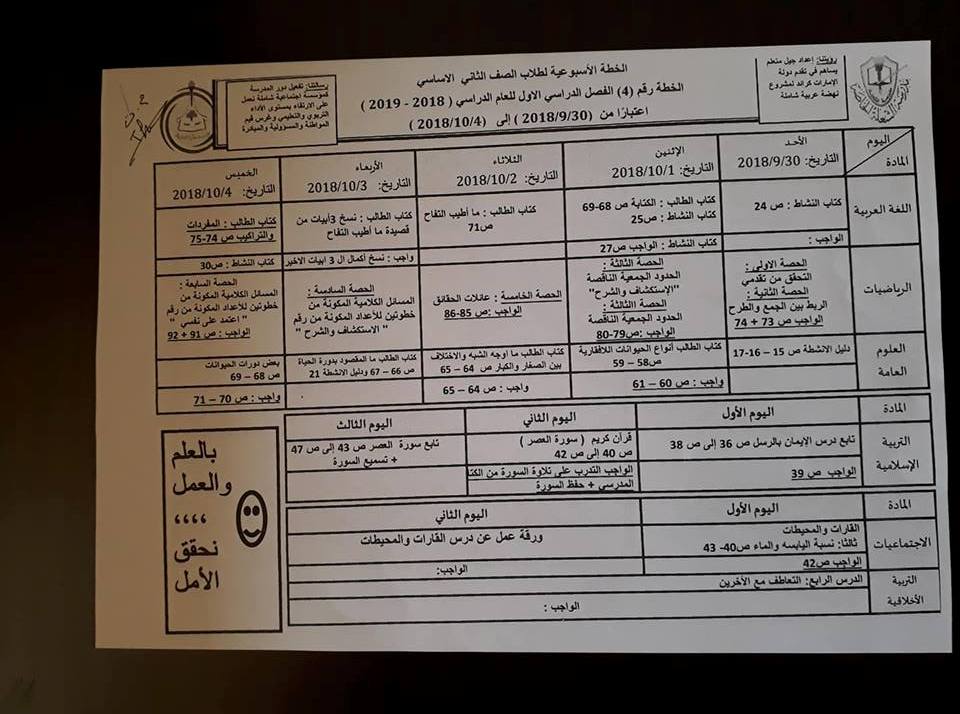 رؤيتنا: إعداد جيل متعلم
يساهم في تقدم دولة
الإمارات كرائد لمشروع
نهضة عربية شاملة
الخطة الأسبوعية لطلاب الصف الثاني الاساسي
الخطة رقم (4) الفصل الدراسي الاول للعام الدراسي ( 2018 - 2019 )
اعتبارًا من (2018/9/30) إلى (2018/10/4 )
رسالتنا: تفعيل دور المدرسة
كمؤسسة اجتماعية شاملة تعمل
على الارتقاء بمستوى الأداء
التربوي والتعليمي وغرس قيم
المواطنة والمسؤولية والمبادرة
اليوم
المادة
الأحد
التاريخ: 2018/9/30
الإثنين
التاريخ: 2018/10/1
الثلاثاء
التاريخ: 2018/10/2
الأربعاء
التاريخ: 2018/10/3
الخميس
التاريخ: 2018/10/4
اللغة العربية
كتاب النشاط : ص 24
الواجب :
كتاب الطالب : الكتابة ص 68-69
كتاب النشاط : ص25
كتاب النشاط : الواجب ص27
كتاب الطالب : ما اطيب التفاح
ص71
كتاب الطالب : نسخ 3أبيات من
قصيدة ما اطيب التفاح
واجب : نسخ أكمال ال 3 ابيات الاخير
كتاب الطالب : المفردات
والتراكيب ص 74-75
كتاب النشاط : ص30
الرياضيات
الحصة الاولى :
التحقق من تقدمي
الحصة الثانية :
الربط بين الجمع والطرح
الواجب ص 73 + 74
الحصة الثالثة :
الحدود الجمعية الناقصة
"الإستكشاف والشرح"
الحصة الثالثة :
الحدود الجمعية الناقصة
الواجب :ص79-80
الحصة الخامسة : عائلات الحقائق
الواجب :ص 85-86
الحصة السادسة :
المسائل الكلامية المكونة من
خطوتين للأعداد المكونة من رقم
" الاستكشاف والشرح "
الحصة السابعة :
المسائل الكلامية المكونة من
خطوتين للأعداد المكونة من رقم
" اعتمد على نفسي "
الواجب : ص 91 + 92
العلوم
العامة
دليل الانشطة ص 15 – 16-17
كتاب الطالب أنواع الحيوانات اللافقارية
ص58 – 59
واجب : ص 60 – 61
كتاب الطالب ما اوجه الشبه والاختلاف
بين الصغار والكبار ص 64 – 65
واجب : ص 64 – 65
كتاب الطالب ما المقصود بدورة الحياة
ص 66 – 67 ودليل الانشطة 21
بعض دورات الحيوانات
ص 68 – 69
واجب : ص 70 – 71
المادة
اليوم الأول
اليوم الثاني
اليوم الثالث
التربية
الإسلامية
تابع درس الإيمان بالرسل ص 36 إلى ص 38
الواجب ص 39
قرآن كريم ( سورة العصر )
ص 40 إلى ص 42
الواجب التدرب على تلاوة السورة من الكتا
المدرسي + حفظ السورة
تابع سورة العصر ص 43 إلى ص 47
+ تسميع السورة
المادة
اليوم الأول
اليوم الثاني
الاجتماعيات
القارات والمحيطات
ثالثا: نسبة اليابسه والماء ص40- 43
الواجب ص42
ورقة عمل عن درس القارات والمحيطات
الواجب:
التربية
الأخلاقية
الدرس الرابع: التعاطف مع الآخرين
الواجب :
بالعلم
والعمل
،،،،
نحقق
الأمل